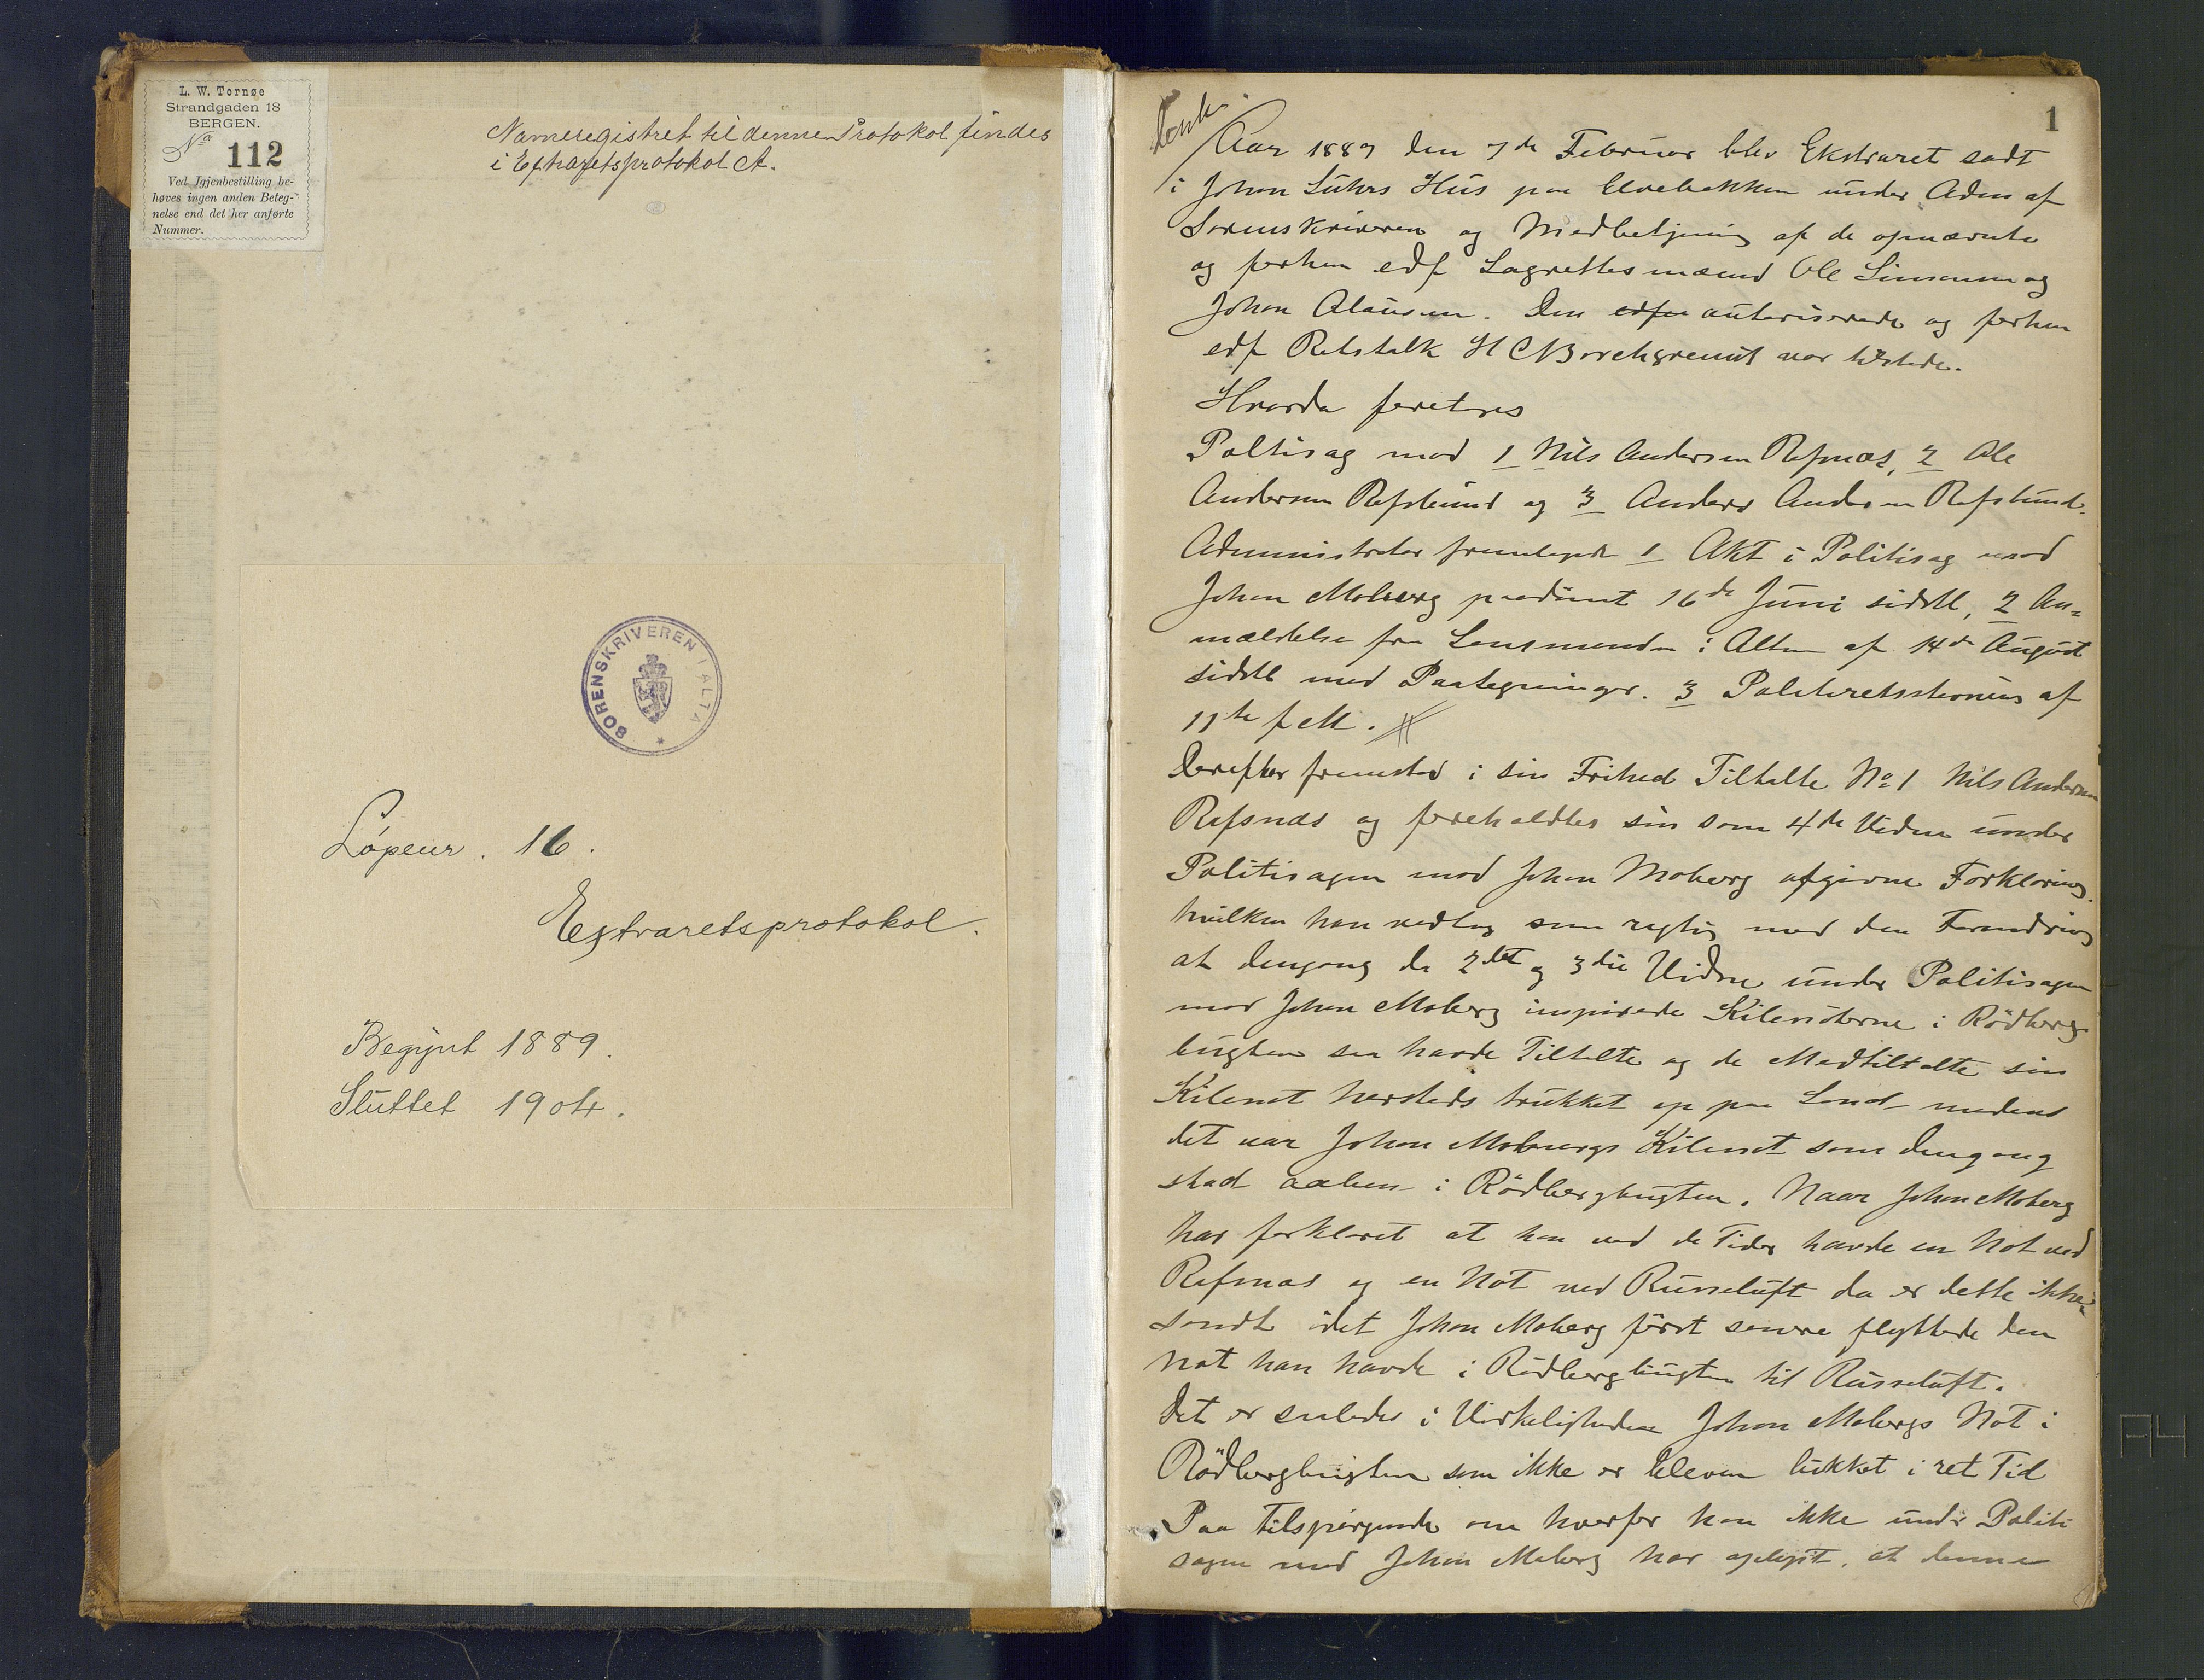 L. W. Tornøe
Strandgaden 18
BERGEN.
No 112
Ved Igjenbestilling be-
høves ingen anden Beteg-
nelse end det her anførte
Nummer.
Navneregistret til denne Protokol findes
i Extraretsprotokol A.
SORENSKRIVEREN I ALTA
Løpenr. 16.
Extraretsprotokol.
Begynt 1889.
Sluttet 1904.
1
Aar 1889 den 7de Februar blev Ekstraret sadt
i Johan Lührs Hus paa Elvebakken under Adm af
Sorenskriveren og Medbetjening af de opnævnte
og forhen edf Lagrettesmænd Ole Simensen og
Johan Clausen. Den edfu autoriserede og forhen
edf Retstolk H C Borchgrevink var tilstede.
Hvorda foretoges
Poltisag mod 1 Nils Andersen Refsnæs, 2 Ole
Andersen Refsbund og 3 Anders Andersen Refsbund.
Administrator fremlagde 1 Akt i Politisag mod
Johan Moberg paadømt 16de Juni sidstl, 2 An-
mældelse fra Lensmanden i Alten af 14de August
sidstl med Paategninger. 3 Politiretsstevning af
11te f M.
Derefter fremstod i sin Frihed Tiltalte No 1 Nils Andersen
Refsnæs og foreholdtes sin som 4de Vidne under
Politisagen mod Johan Moberg afgivne Forklaring,
hvilken han vedtog som rigtig med den Forandring
at dengang da 2det og 3die Vidne under Politisagen
mod Johan Moberg inspicerede Kilenöterne i Rödberg-
bugten saa havde Tiltalte og de Medtiltalte sin
Kilenot hersteds trukket op paa Land medens
det var Johan Mobergs Kilenot som dengang
stod aaben i Rödbergbugten. Naar Johan Moberg
har forklaret at han ved de Tider havde en Not ved
Refsnæs og en Not ved Russeluft da er dette ikke
sandt idet Johan Moberg først senere flyttede den
Not han havde i Rödbergbugten til Russeluft.
Det er saaledes i Virkeligheden Johan Mobergs Not i
Rödbergbugten som ikke er bleven lukket i ret Tid
Paa Tilspørgende om hvorfor han ikke under Politi
sagen mod Johan Moberg har oplyst, at denne